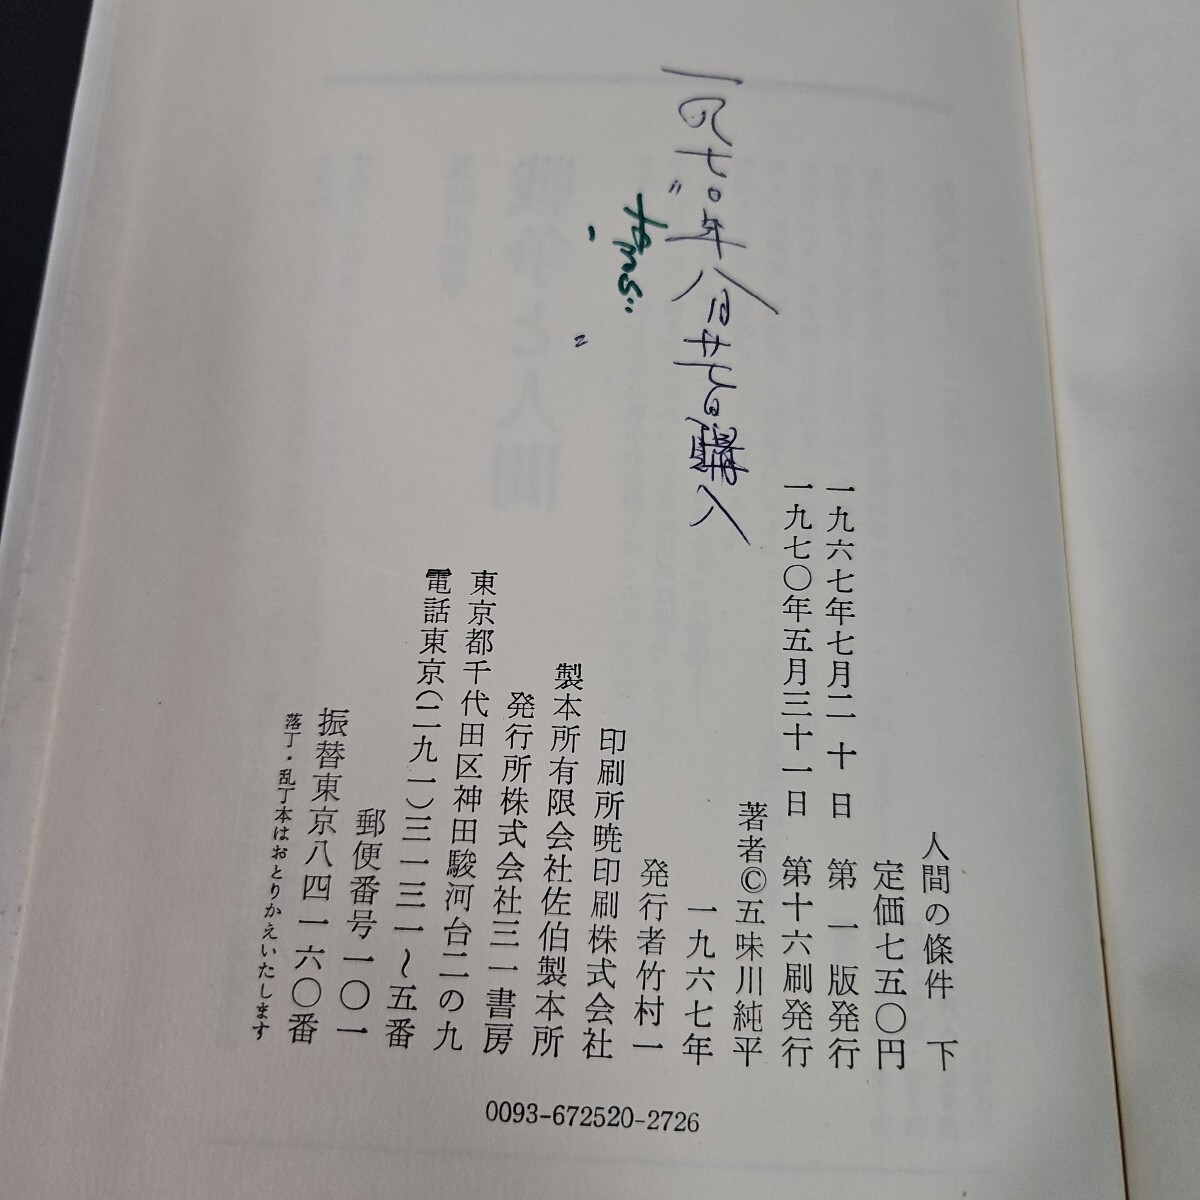 人間の條件 下
定価七五〇円
一九六七年七月二十日 第一版発行
一九七〇年五月三十一日 第十六刷発行
著者©五味川純平
一九六七年
発行者竹村一
印刷所暁印刷株式会社
製本所有限会社佐伯製本所
発行所株式会社三一書房
東京都千代田区神田駿河台二の九
電話東京(二九一)三一三一〜五番
郵便番号一〇一
振替東京八四一六〇番
落丁・乱丁本はおとりかえいたします
0093-672520-2726
一九七〇年八月廿七日購入
戦争と人間